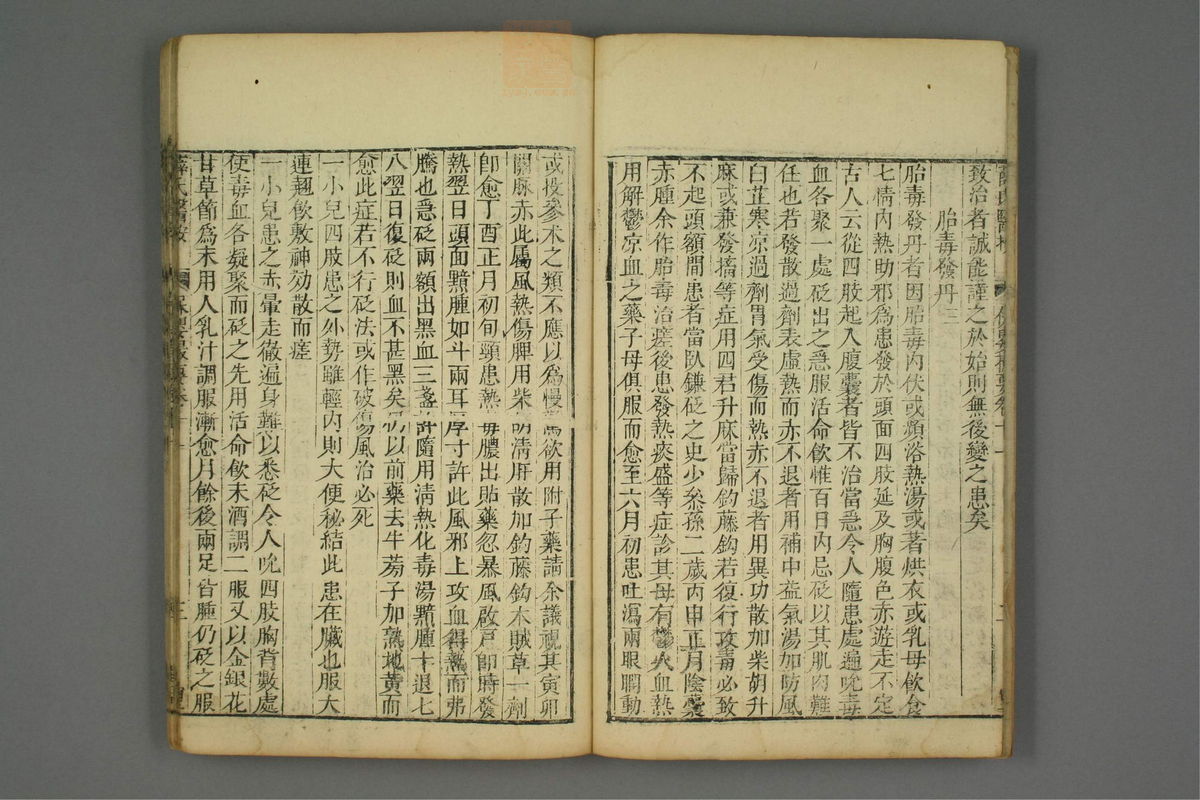 薛氏醫按
致治者誠能謹之於始則無後變之患矣
胎毒發丹三
胎毒發丹者因胎毒內伏或頻浴熱湯或著烘衣或乳母飲食
七情內熱助邪為患發於頭面四肢延及胸腹色赤遊走不定
古人云從四肢起入腹囊者皆不治當急令人隨患處遍吮毒
血各聚一處砭出之急服活命飲惟百日內忌砭以其肌肉難
任也若發散過劑表虛熱而赤不退者用補中益氣湯加防風
白芷寒凉過劑胃氣受傷而熱赤不退者用異功散加柴胡升
麻或兼發搐等症用四君升麻當歸釣藤鈎若復行攻毒必致
不起頭額間患者當臥鎌砭之史少叅孫二歲丙申正月陰囊
赤腫余作胎毒治瘥後患發熱痰盛等症診其母有鬱火血熱
用解鬱凉血之藥子母俱服而愈至六月初患吐瀉兩眼瞤動
或投參朮之類不應以為慢驚欲用附子藥請余議視其寅卯
關脉赤此屬風熱傷脾用柴胡清肝散加釣藤鈎木賊草一劑
即愈丁酉正月初旬頸患熱毒膿出貼藥忽暴風啟戶即時發
熱翌日頭面黯腫如斗兩耳厚寸許此風邪上攻血得熱而弗
騰也急砭兩額出黑血三盞許隨用清熱化毒湯黯腫十退七
八翌日復砭則血不甚黑矣仍以前藥去牛蒡子加熟地黃而
愈此症若不行砭法或作破傷風治必死
一小兒四肢患之外勢雖輕內則大便秘結此患在臟也服大
連翹飲敷神効散而瘥
一小兒患之赤暈走徹遍身難以悉砭令人吮四肢胸背數處
使毒血各凝聚而砭之先用活命飲末酒調二服又以金銀花
甘草節為末用人乳汁調服漸愈月餘後兩足皆腫仍砭之服
薛氏醫按